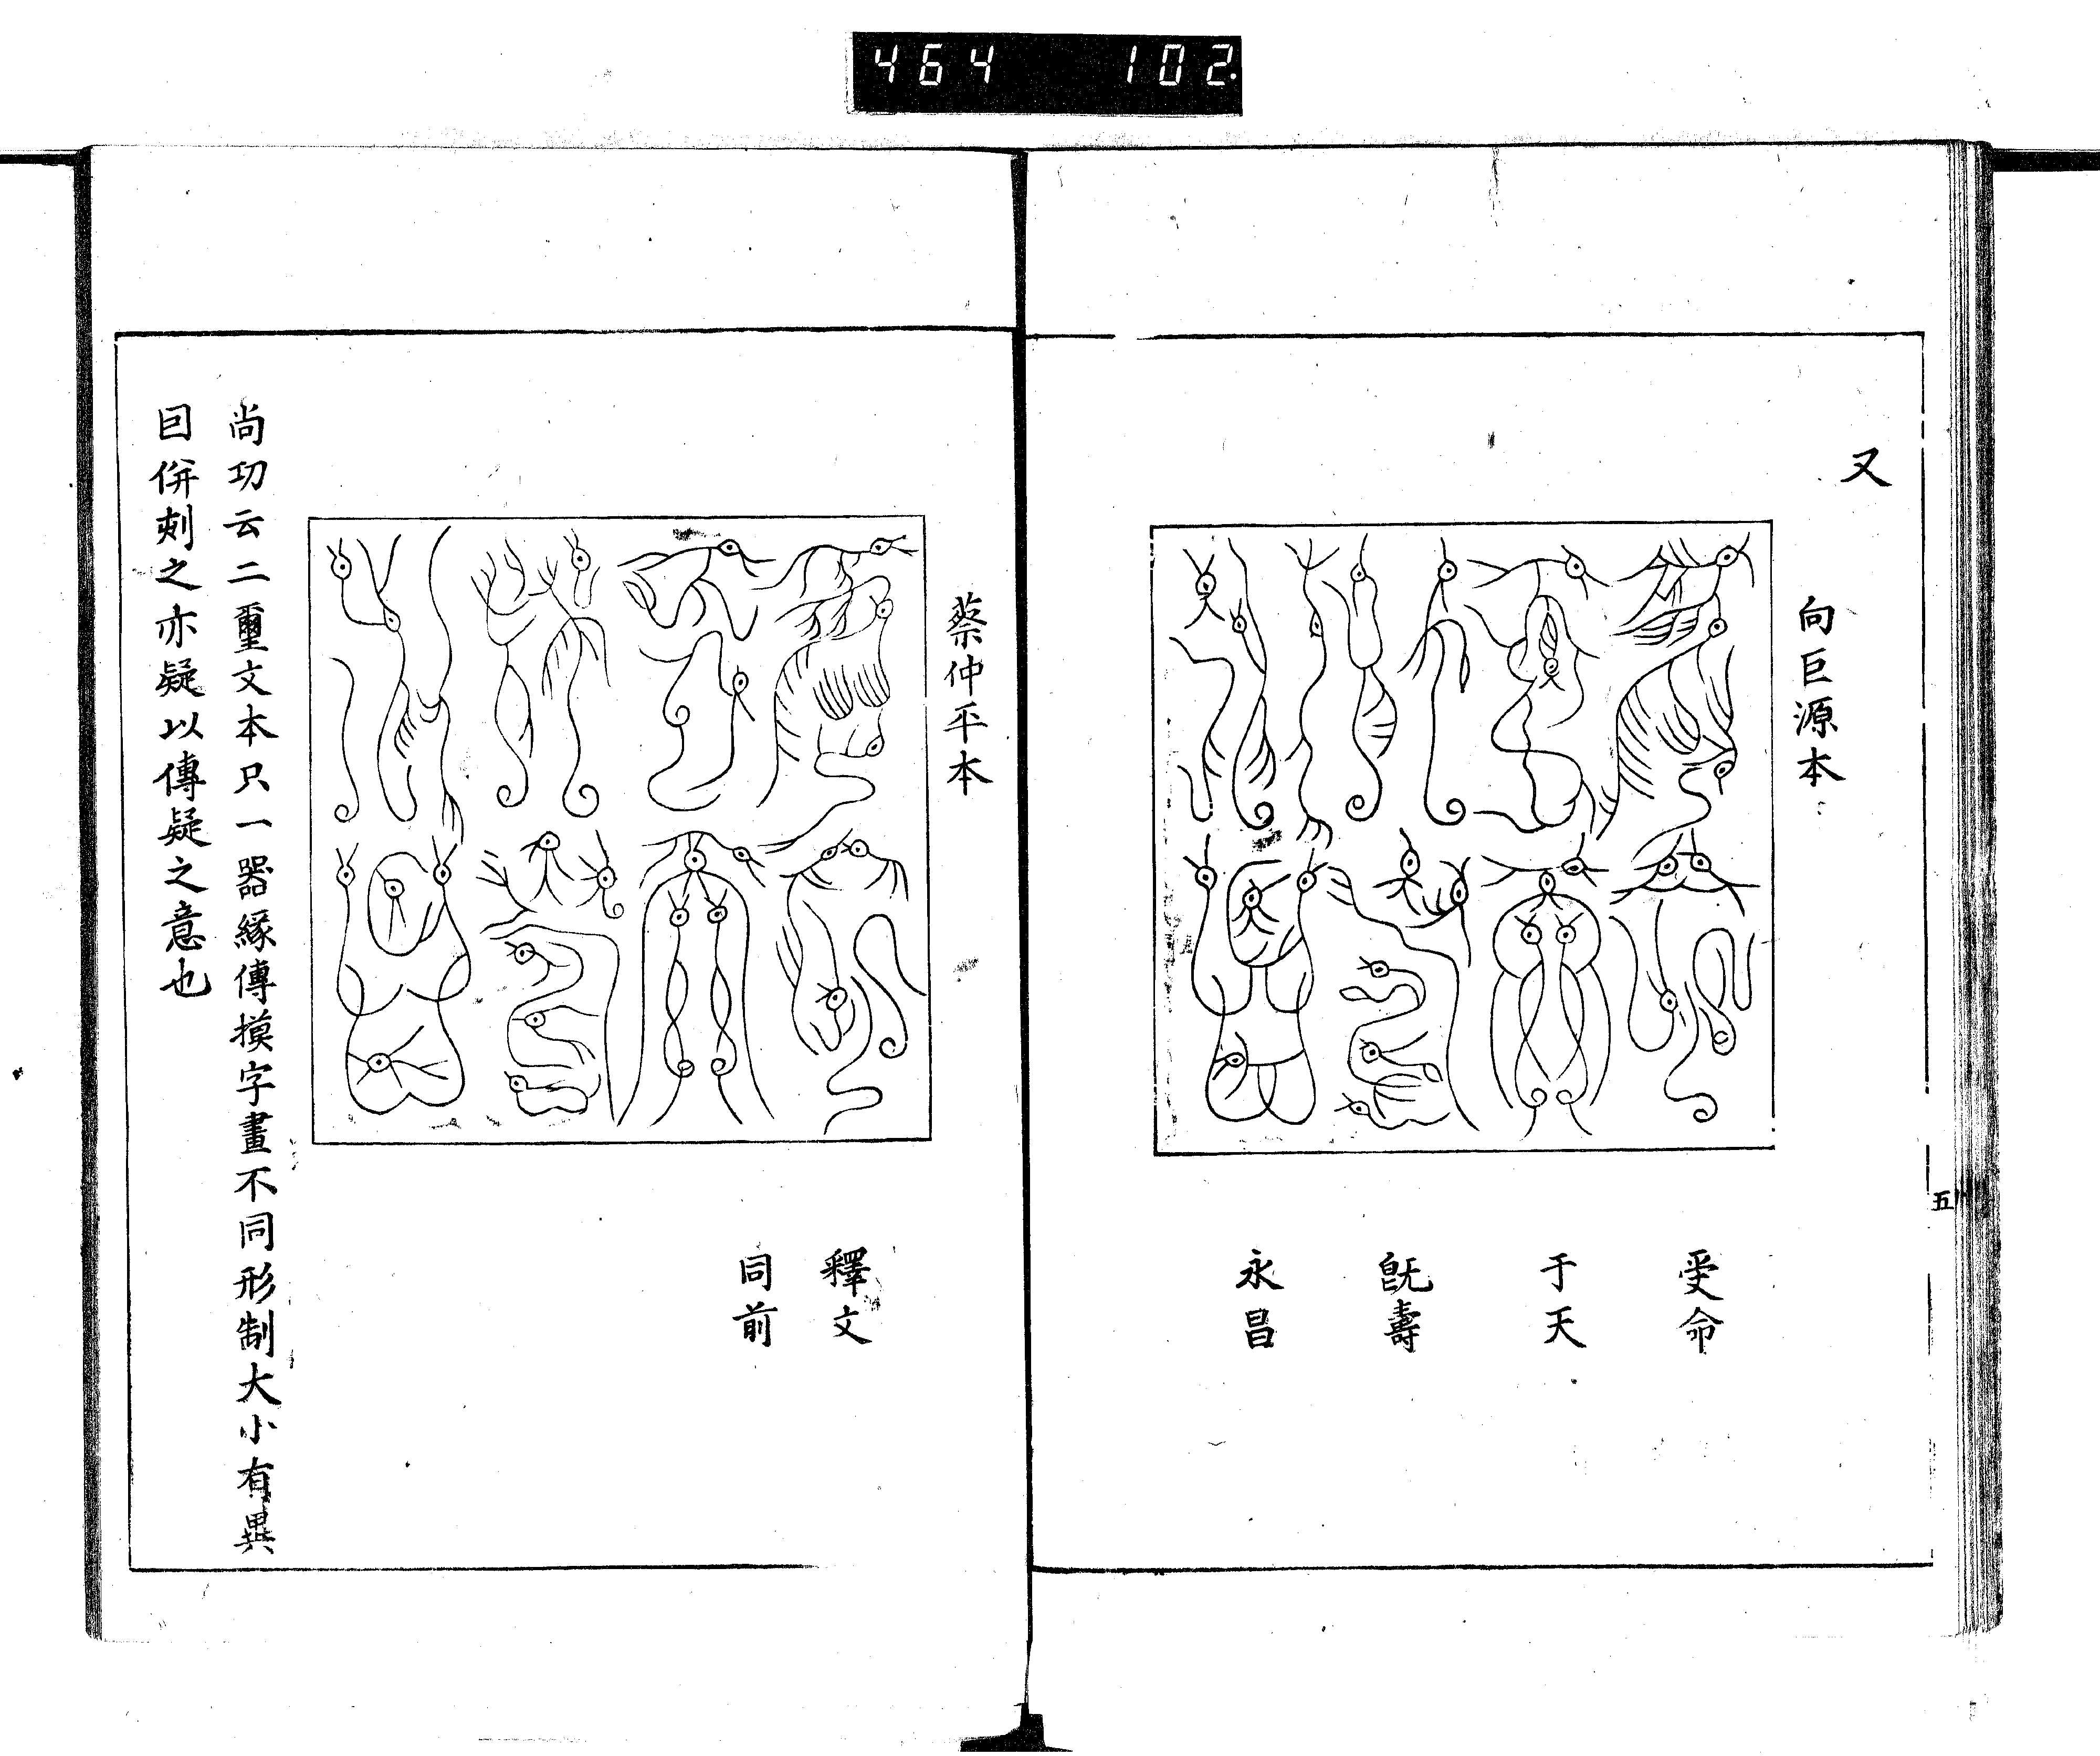 464 102
又
向巨源本
受命
于天
旣壽
永昌
五
蔡仲平本
釋文
同前
尚功云二璽文本只一器緣傳摸字畫不同形制大小有異
囙併刻之亦疑以傳疑之意也